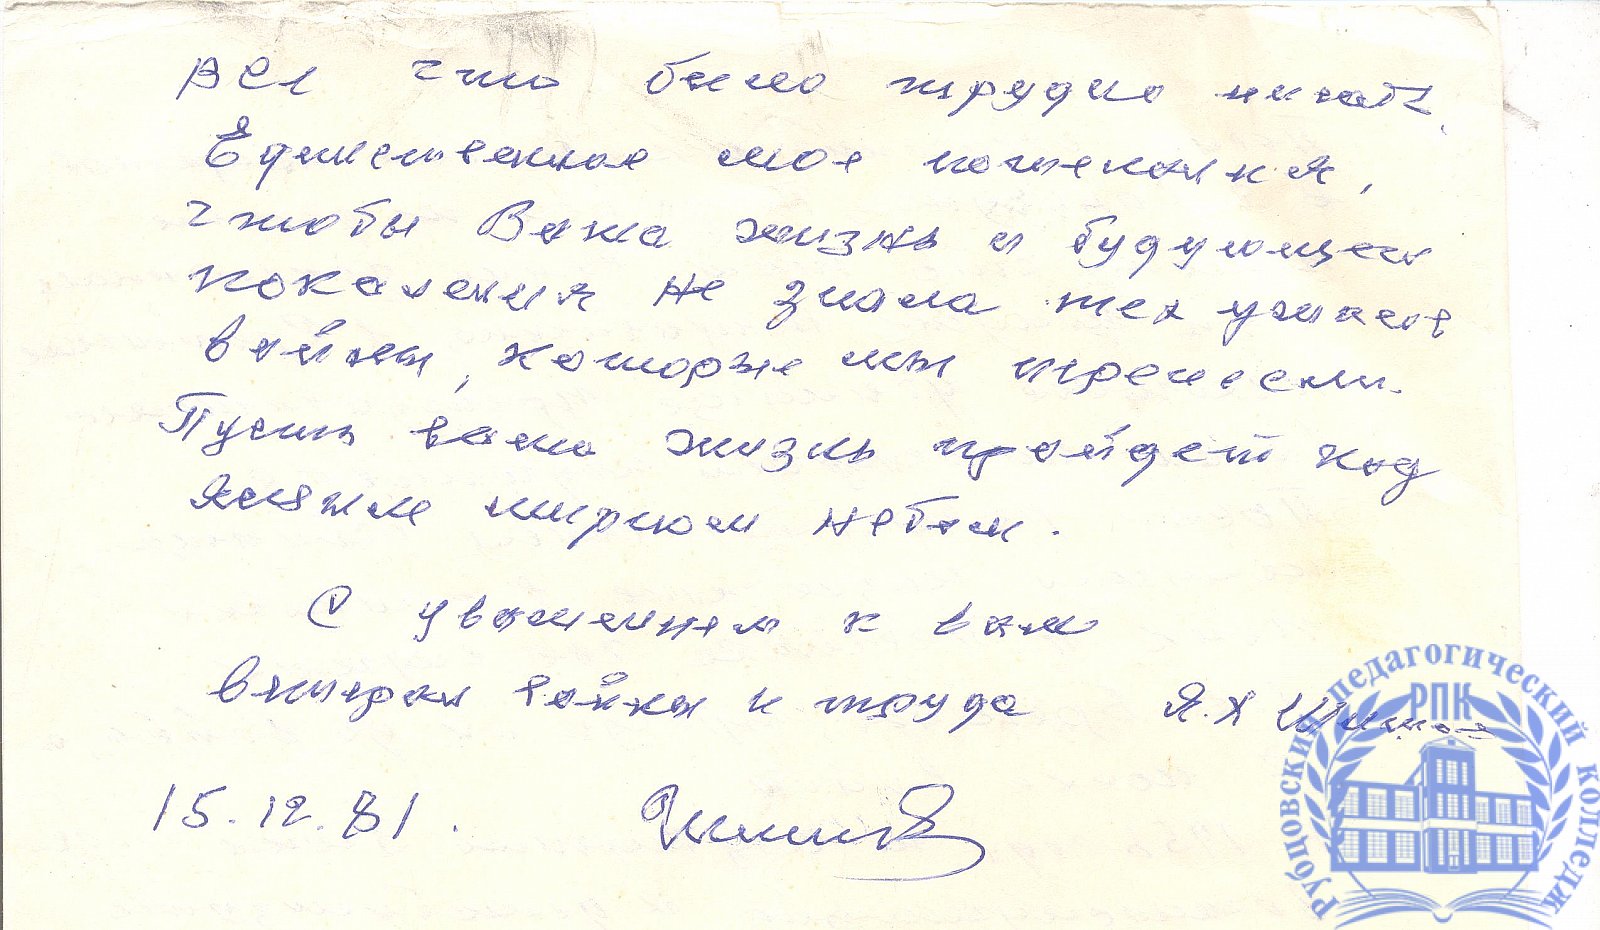 Всё что было трудно писать.
Единственное мое пожелания,
чтобы Ваша жизнь и будующего
поколения не знала тех ужасов
войны, которые мы перенесли.
Пусть ваша жизнь пройдет под
ясным мирном небом.
С уважением к вам
ветеран войны и труда Я.Х
15.12.81.
Рубцовский педагогический колледж
РПК